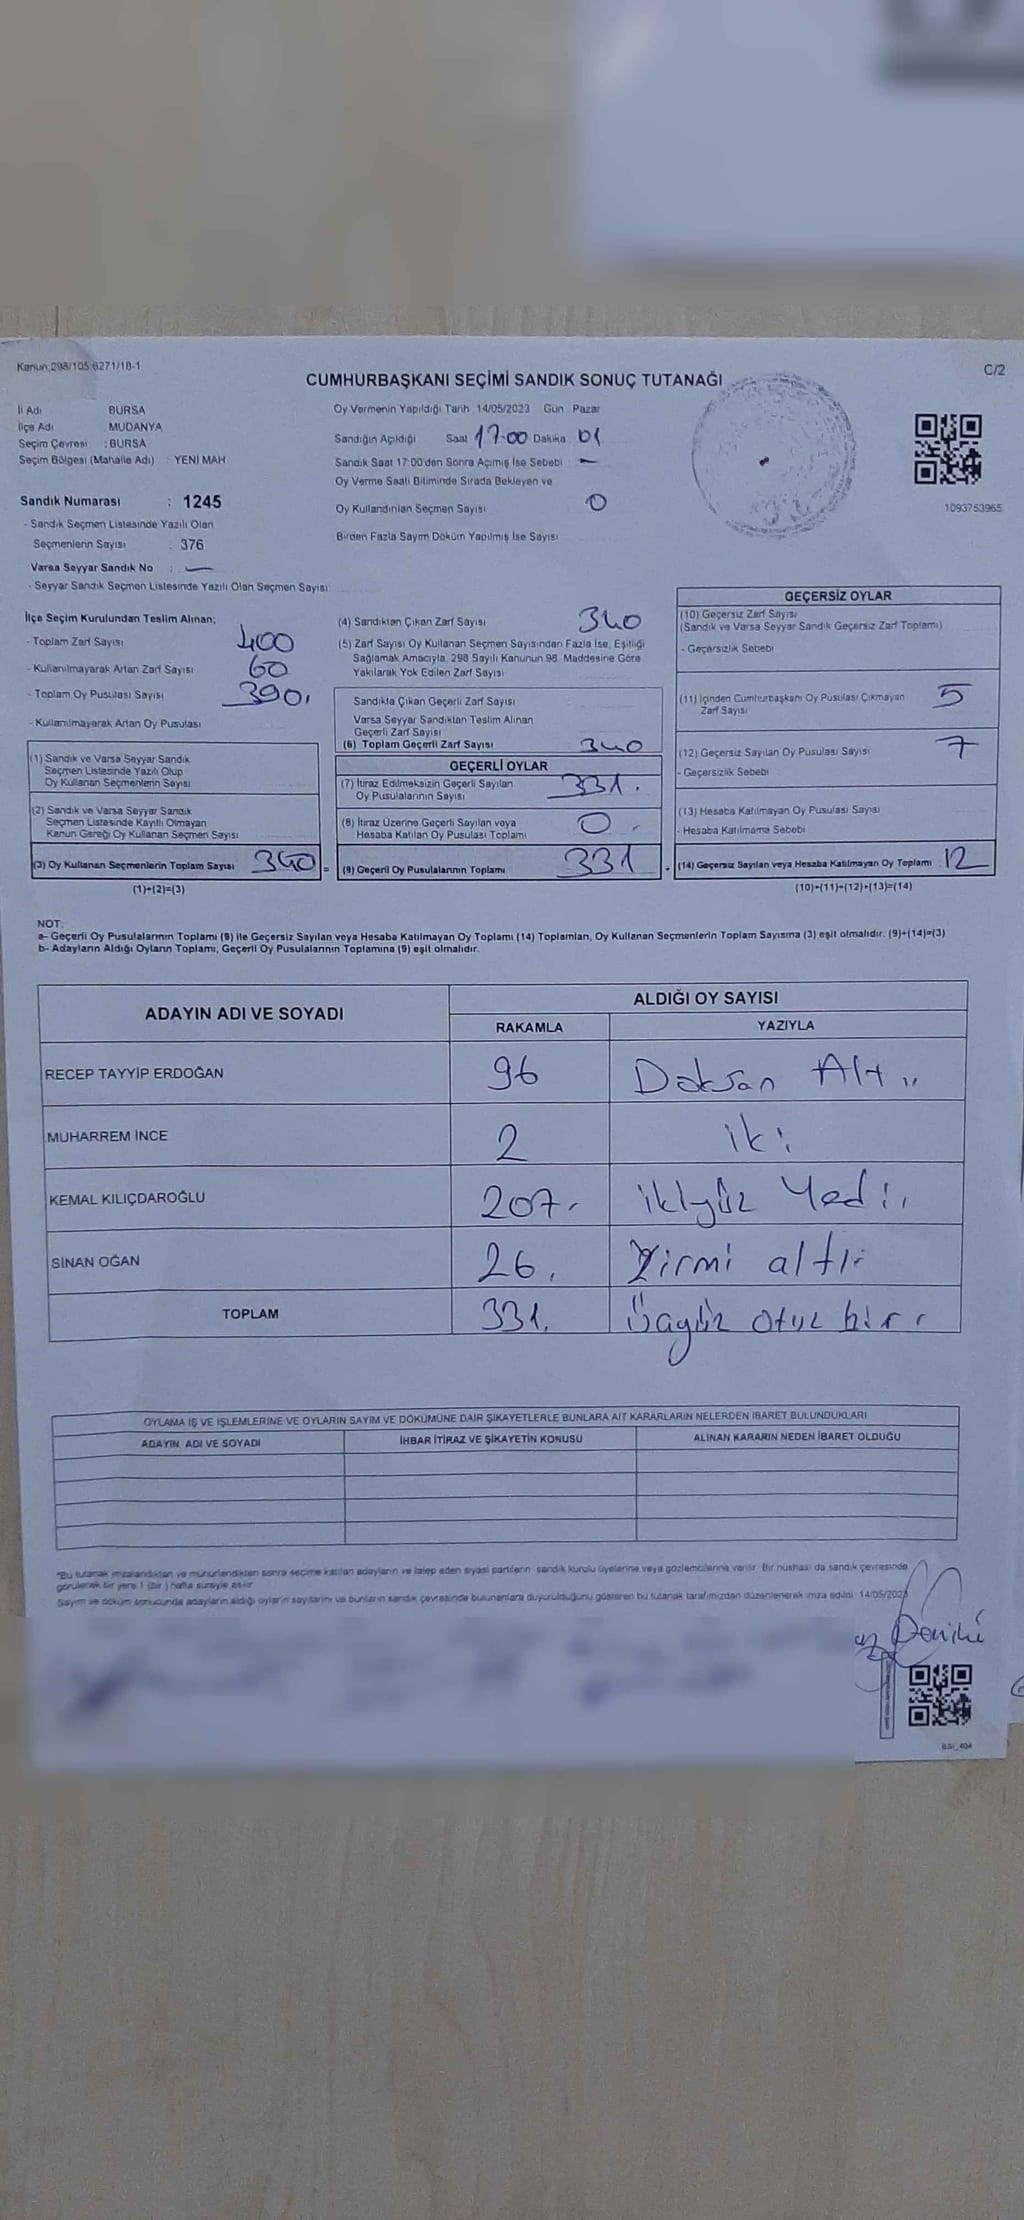 Kanun:298/105,6271/18-1
C/2
CUMHURBAŞKANI SEÇİMİ SANDIK SONUÇ TUTANAĞI
İl Adı BURSA
İlçe Adı MUDANYA
Seçim Çevresi : BURSA
Seçim Bölgesi (Mahalle Adı) : YENİ MAH
Sandık Numarası : 1245
- Sandık Seçmen Listesinde Yazılı Olan
Seçmenlerin Sayısı : 376
Varsa Seyyar Sandık No : —
- Seyyar Sandık Seçmen Listesinde Yazılı Olan Seçmen Sayısı
Oy Vermenin Yapıldığı Tarih 14/05/2023 Gün Pazar
Sandığın Açıldığı Saat 17:00 Dakika 01
Sandık Saat 17:00'den Sonra Açımış İse Sebebi —
Oy Verme Saati Bitiminde Sırada Bekleyen ve
Oy Kullandırılan Seçmen Sayısı 0
Birden Fazla Sayım Döküm Yapılmış İse Sayısı
1093753965
İlçe Seçim Kurulundan Teslim Alınan;
- Toplam Zarf Sayısı 400
- Kullanılmayarak Artan Zarf Sayısı 60
- Toplam Oy Pusulası Sayısı 390.
- Kullanılmayarak Artan Oy Pusulası
(1) Sandık ve Varsa Seyyar Sandık
Seçmen Listesinde Yazılı Olup
Oy Kullanan Seçmenlerin Sayısı
(2) Sandık ve Varsa Seyyar Sandık
Seçmen Listesinde Kayıtlı Olmayan
Kanun Gereği Oy Kullanan Seçmen Sayısı
(3) Oy Kullanan Seçmenlerin Toplam Sayısı 340 =
(1)+(2)=(3)
(4) Sandıktan Çıkan Zarf Sayısı 340
(5) Zarf Sayısı Oy Kullanan Seçmen Sayısından Fazla İse, Eşitliği
Sağlamak Amacıyla, 298 Sayılı Kanunun 98. Maddesine Göre
Yakılarak Yok Edilen Zarf Sayısı
Sandıkta Çıkan Geçerli Zarf Sayısı
Varsa Seyyar Sandıktan Teslim Alınan
Geçerli Zarf Sayısı
(6) Toplam Geçerli Zarf Sayısı 340
GEÇERLİ OYLAR
(7) İtiraz Edilmeksizin Geçerli Sayılan
Oy Pusulalarının Sayısı 331.
(8) İtiraz Üzerine Geçerli Sayılan veya
Hesaba Katılan Oy Pusulası Toplamı 0.
(9) Geçerli Oy Pusulalarının Toplamı 331
GEÇERSİZ OYLAR
(10) Geçersiz Zarf Sayısı
(Sandık ve Varsa Seyyar Sandık Geçersiz Zarf Toplamı)
- Geçersizlik Sebebi
(11) İçinden Cumhurbaşkanı Oy Pusulası Çıkmayan
Zarf Sayısı 5
(12) Geçersiz Sayılan Oy Pusulası Sayısı 7
- Geçersizlik Sebebi
(13) Hesaba Katılmayan Oy Pusulası Sayısı
- Hesaba Katılmama Sebebi
(14) Geçersiz Sayılan veya Hesaba Katılmayan Oy Toplamı 12
(10)+(11)+(12)+(13)=(14)
NOT:
a- Geçerli Oy Pusulalarının Toplamı (9) ile Geçersiz Sayılan veya Hesaba Katılmayan Oy Toplamı (14) Toplamları, Oy Kullanan Seçmenlerin Toplam Sayısına (3) eşit olmalıdır. (9)+(14)=(3)
b- Adayların Aldığı Oyların Toplamı, Geçerli Oy Pusulalarının Toplamına (9) eşit olmalıdır.
ADAYIN ADI VE SOYADI
ALDIĞI OY SAYISI
RAKAMLA YAZIYLA
RECEP TAYYİP ERDOĞAN 96 Doksan Altı
MUHARREM İNCE 2 iki
KEMAL KILIÇDAROĞLU 207. ikiyüz Yedi
SİNAN OĞAN 26. Yirmi altı
TOPLAM 331. Üçyüz otuz bir
OYLAMA İŞ VE İŞLEMLERİNE VE OYLARIN SAYIM VE DÖKÜMÜNE DAİR ŞİKAYETLERLE BUNLARA AİT KARARLARIN NELERDEN İBARET BULUNDUKLARI
ADAYIN ADI VE SOYADI İHBAR İTİRAZ VE ŞİKAYETİN KONUSU ALINAN KARARIN NEDEN İBARET OLDUĞU
*Bu tutanak imzalandıktan ve mühürlendikten sonra seçime katılan adayların ve talep eden siyasi partilerin sandık kurulu üyelerine veya gözlemcilerine verilir. Bir nüshası da sandık çevresinde
görülecek bir yere 1 (bir) hafta süreyle asılır.
Sayım ve döküm sonucunda adayların aldığı oyların sayılarını ve bunların sandık çevresinde bulunanlara duyurulduğunu gösteren bu tutanak tarafımızdan düzenlenerek imza edildi. 14/05/2023